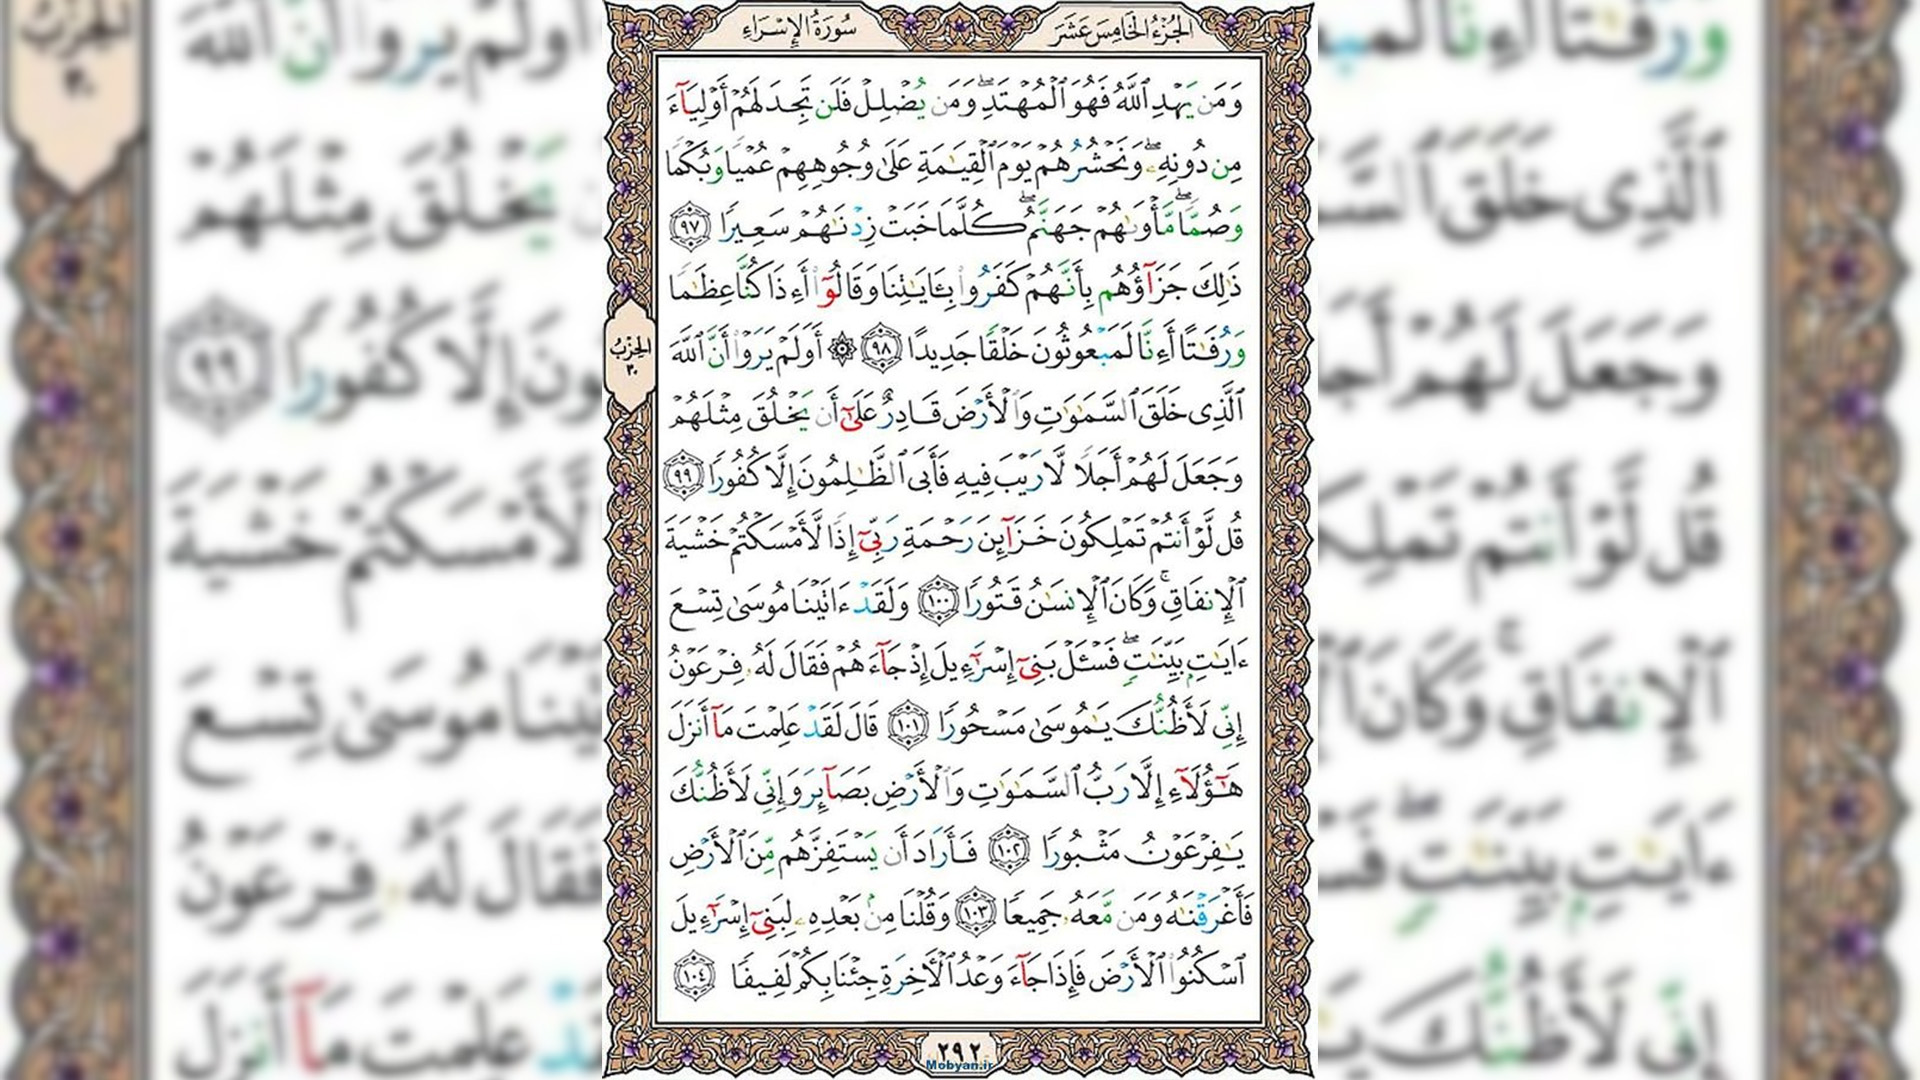 الجُزْءُ الخَامِسَ عَشَرَ
سُورَةُ الإِسْرَاءِ
وَمَن يَهْدِ ٱللَّهُ فَهُوَ ٱلْمُهْتَدِ ۖ وَمَن يُضْلِلْ فَلَن تَجِدَ لَهُمْ أَوْلِيَآءَ
مِن دُونِهِۦ ۖ وَنَحْشُرُهُمْ يَوْمَ ٱلْقِيَـٰمَةِ عَلَىٰ وُجُوهِهِمْ عُمْيًا وَبُكْمًا
وَصُمًّا ۖ مَّأْوَىٰهُمْ جَهَنَّمُ ۖ كُلَّمَا خَبَتْ زِدْنَـٰهُمْ سَعِيرًا ٩٧
ذَٰلِكَ جَزَآؤُهُم بِأَنَّهُمْ كَفَرُوا۟ بِـَٔايَـٰتِنَا وَقَالُوٓا۟ أَءِذَا كُنَّا عِظَـٰمًا
وَرُفَـٰتًا أَءِنَّا لَمَبْعُوثُونَ خَلْقًا جَدِيدًا ٩٨ ۞ أَوَلَمْ يَرَوْا۟ أَنَّ ٱللَّهَ
ٱلَّذِى خَلَقَ ٱلسَّمَـٰوَٰتِ وَٱلْأَرْضَ قَادِرٌ عَلَىٰٓ أَن يَخْلُقَ مِثْلَهُمْ
وَجَعَلَ لَهُمْ أَجَلًا لَّا رَيْبَ فِيهِ فَأَبَى ٱلظَّـٰلِمُونَ إِلَّا كُفُورًا ٩٩
قُل لَّوْ أَنتُمْ تَمْلِكُونَ خَزَآئِنَ رَحْمَةِ رَبِّىٓ إِذًا لَّأَمْسَكْتُمْ خَشْيَةَ
ٱلْإِنفَاقِ ۚ وَكَانَ ٱلْإِنسَـٰنُ قَتُورًا ١٠٠ وَلَقَدْ ءَاتَيْنَا مُوسَىٰ تِسْعَ
ءَايَـٰتٍۭ بَيِّنَـٰتٍ ۖ فَسْـَٔلْ بَنِىٓ إِسْرَٰٓءِيلَ إِذْ جَآءَهُمْ فَقَالَ لَهُۥ فِرْعَوْنُ
إِنِّى لَأَظُنُّكَ يَـٰمُوسَىٰ مَسْحُورًا ١٠١ قَالَ لَقَدْ عَلِمْتَ مَآ أَنزَلَ
هَـٰٓؤُلَآءِ إِلَّا رَبُّ ٱلسَّمَـٰوَٰتِ وَٱلْأَرْضِ بَصَآئِرَ وَإِنِّى لَأَظُنُّكَ
يَـٰفِرْعَوْنُ مَثْبُورًا ١٠٢ فَأَرَادَ أَن يَسْتَفِزَّهُم مِّنَ ٱلْأَرْضِ
فَأَغْرَقْنَـٰهُ وَمَن مَّعَهُۥ جَمِيعًا ١٠٣ وَقُلْنَا مِنۢ بَعْدِهِۦ لِبَنِىٓ إِسْرَٰٓءِيلَ
ٱسْكُنُوا۟ ٱلْأَرْضَ فَإِذَا جَآءَ وَعْدُ ٱلْـَٔاخِرَةِ جِئْنَا بِكُمْ لَفِيفًا ١٠٤
الحِزْبُ
٣٠
٢٩٢
Mobyan.ir